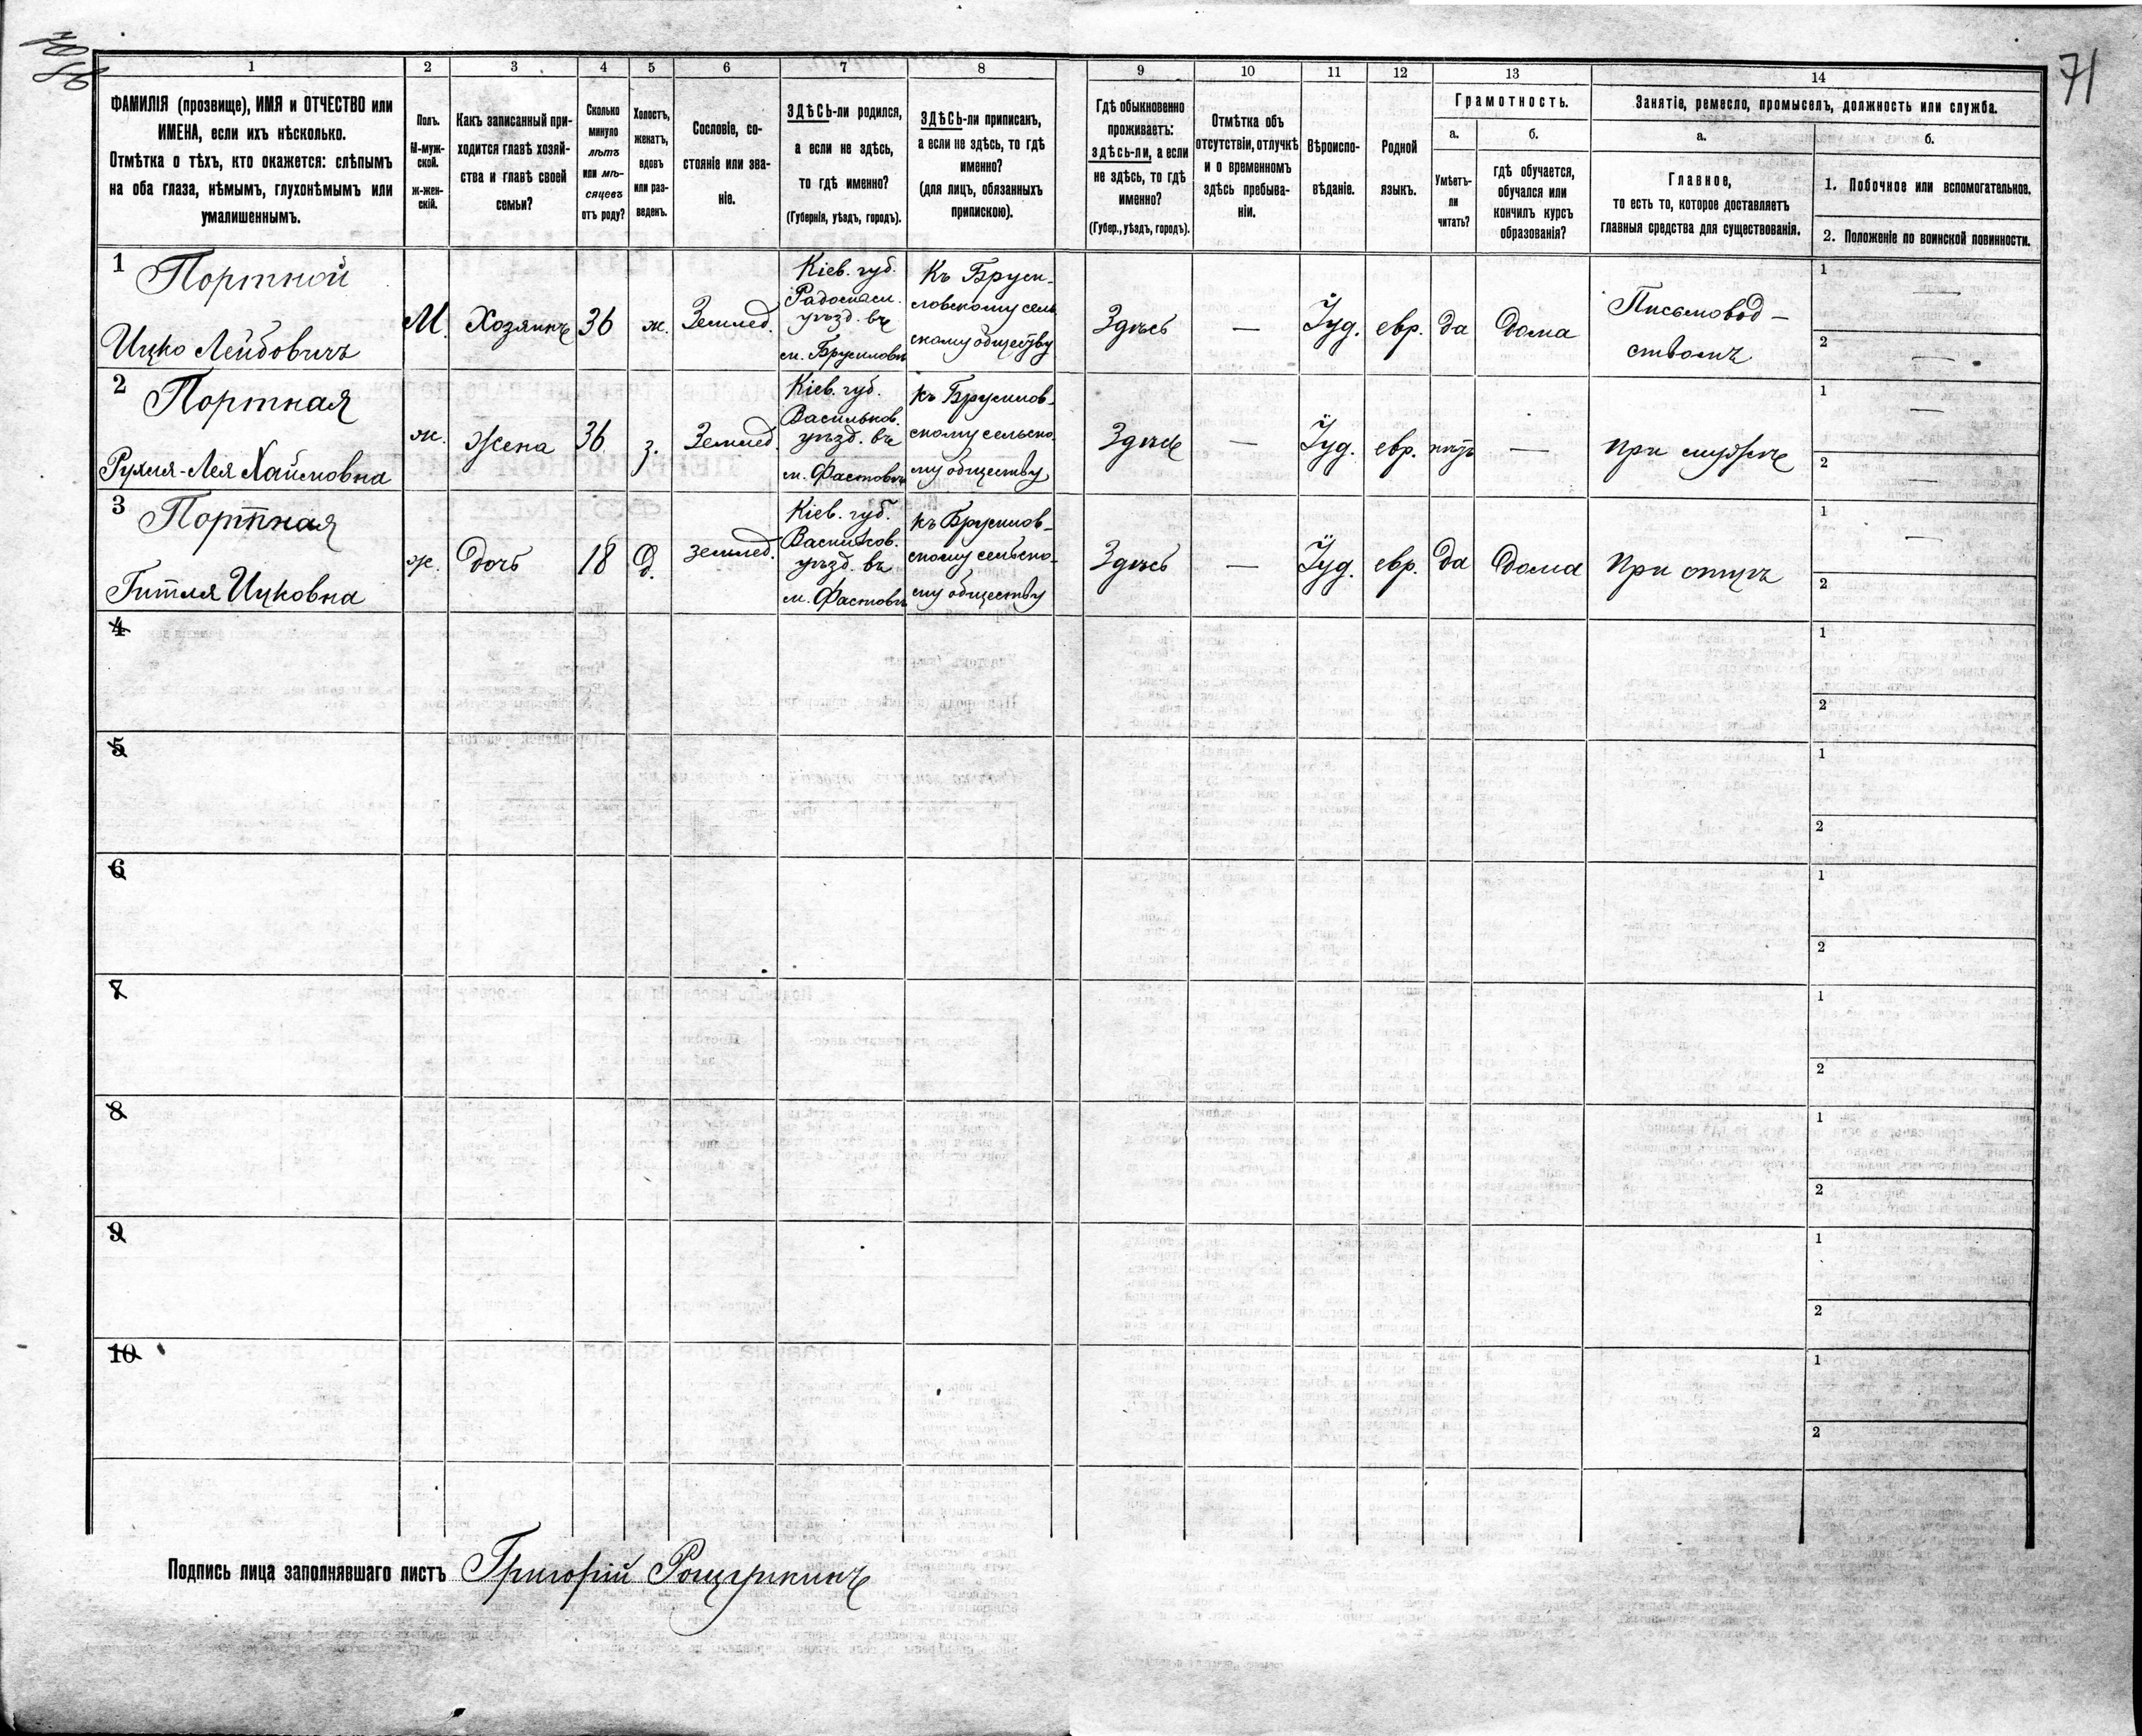 71
1
2
3
4
5
6
7
8
9
10
11
12
13
14
ФАМИЛІЯ (прозвище), ИМЯ и ОТЧЕСТВО или
ИМЕНА, если ихъ нѣсколько.
Отмѣтка о тѣхъ, кто окажется: слѣпымъ
на оба глаза, нѣмымъ, глухонѣмымъ или
умалишеннымъ.
Полъ.
М-муж-
ской.
ж-жен-
скій.
Какъ записанный при-
ходится главѣ хозяй-
ства и главѣ своей
семьи?
Сколько
минуло
лѣтъ
или мѣ-
сяцевъ
отъ роду?
Холостъ,
женатъ,
вдовъ
или раз-
веденъ.
Сословіе, со-
стояніе или зва-
ніе.
ЗДѢСЬ-ли родился,
а если не здѣсь,
то гдѣ именно?
(Губернія, уѣздъ, городъ).
ЗДѢСЬ-ли приписанъ,
а если не здѣсь, то гдѣ
именно?
(для лицъ, обязанныхъ
припискою).
Гдѣ обыкновенно
проживаетъ:
здѣсь-ли, а если
не здѣсь, то гдѣ
именно?
(Губер., уѣздъ, городъ).
Отмѣтка объ
отсутствіи, отлучкѣ
и о временномъ
здѣсь пребыва-
ніи.
Вѣроиспо-
вѣданіе.
Родной
языкъ.
Грамотность.
а.
Умѣетъ-
ли
читать?
б.
гдѣ обучается,
обучался или
кончилъ курсъ
образованія?
Занятіе, ремесло, промыселъ, должность или служба.
а.
Главное,
то есть то, которое доставляетъ
главныя средства для существованія.
б.
1. Побочное или вспомогательное.
2. Положеніе по воинской повинности.
1
Портной
Ицко Лейбовичъ
М.
Хозяинъ
36
ж.
Землед.
Кіев. губ.
Радомысл.
уѣзд. въ
м. Брусиловѣ
Къ Бруси-
ловскому сель
скому обществу
Здѣсь
—
Іуд.
евр.
да
Дома
Письмовод-
ствомъ
1 —
2 —
2
Портная
Рухля-Лея Хаймовна
ж.
Жена
36
з.
Землед.
Кіев. губ.
Васильков.
уѣзд. въ
м. Фастовѣ
къ Брусилов-
скому сельско-
му обществу
Здѣсь
—
Іуд.
евр.
нѣтъ
—
при мужѣ
1 —
2 —
3
Портная
Гитля Ицковна
ж.
Дочь
18
д.
землед.
Кіев. губ.
Васильков.
уѣзд. въ
м. Фастовѣ
къ Брусилов-
скому сельско-
му обществу
Здѣсь
—
Іуд.
евр.
да
Дома
При отцѣ
1 —
2
4
1
2
5
1
2
6
1
2
7
1
2
8
1
2
9
1
2
10
1
2
Подпись лица заполнявшаго листъ Григорій Рощупкинъ